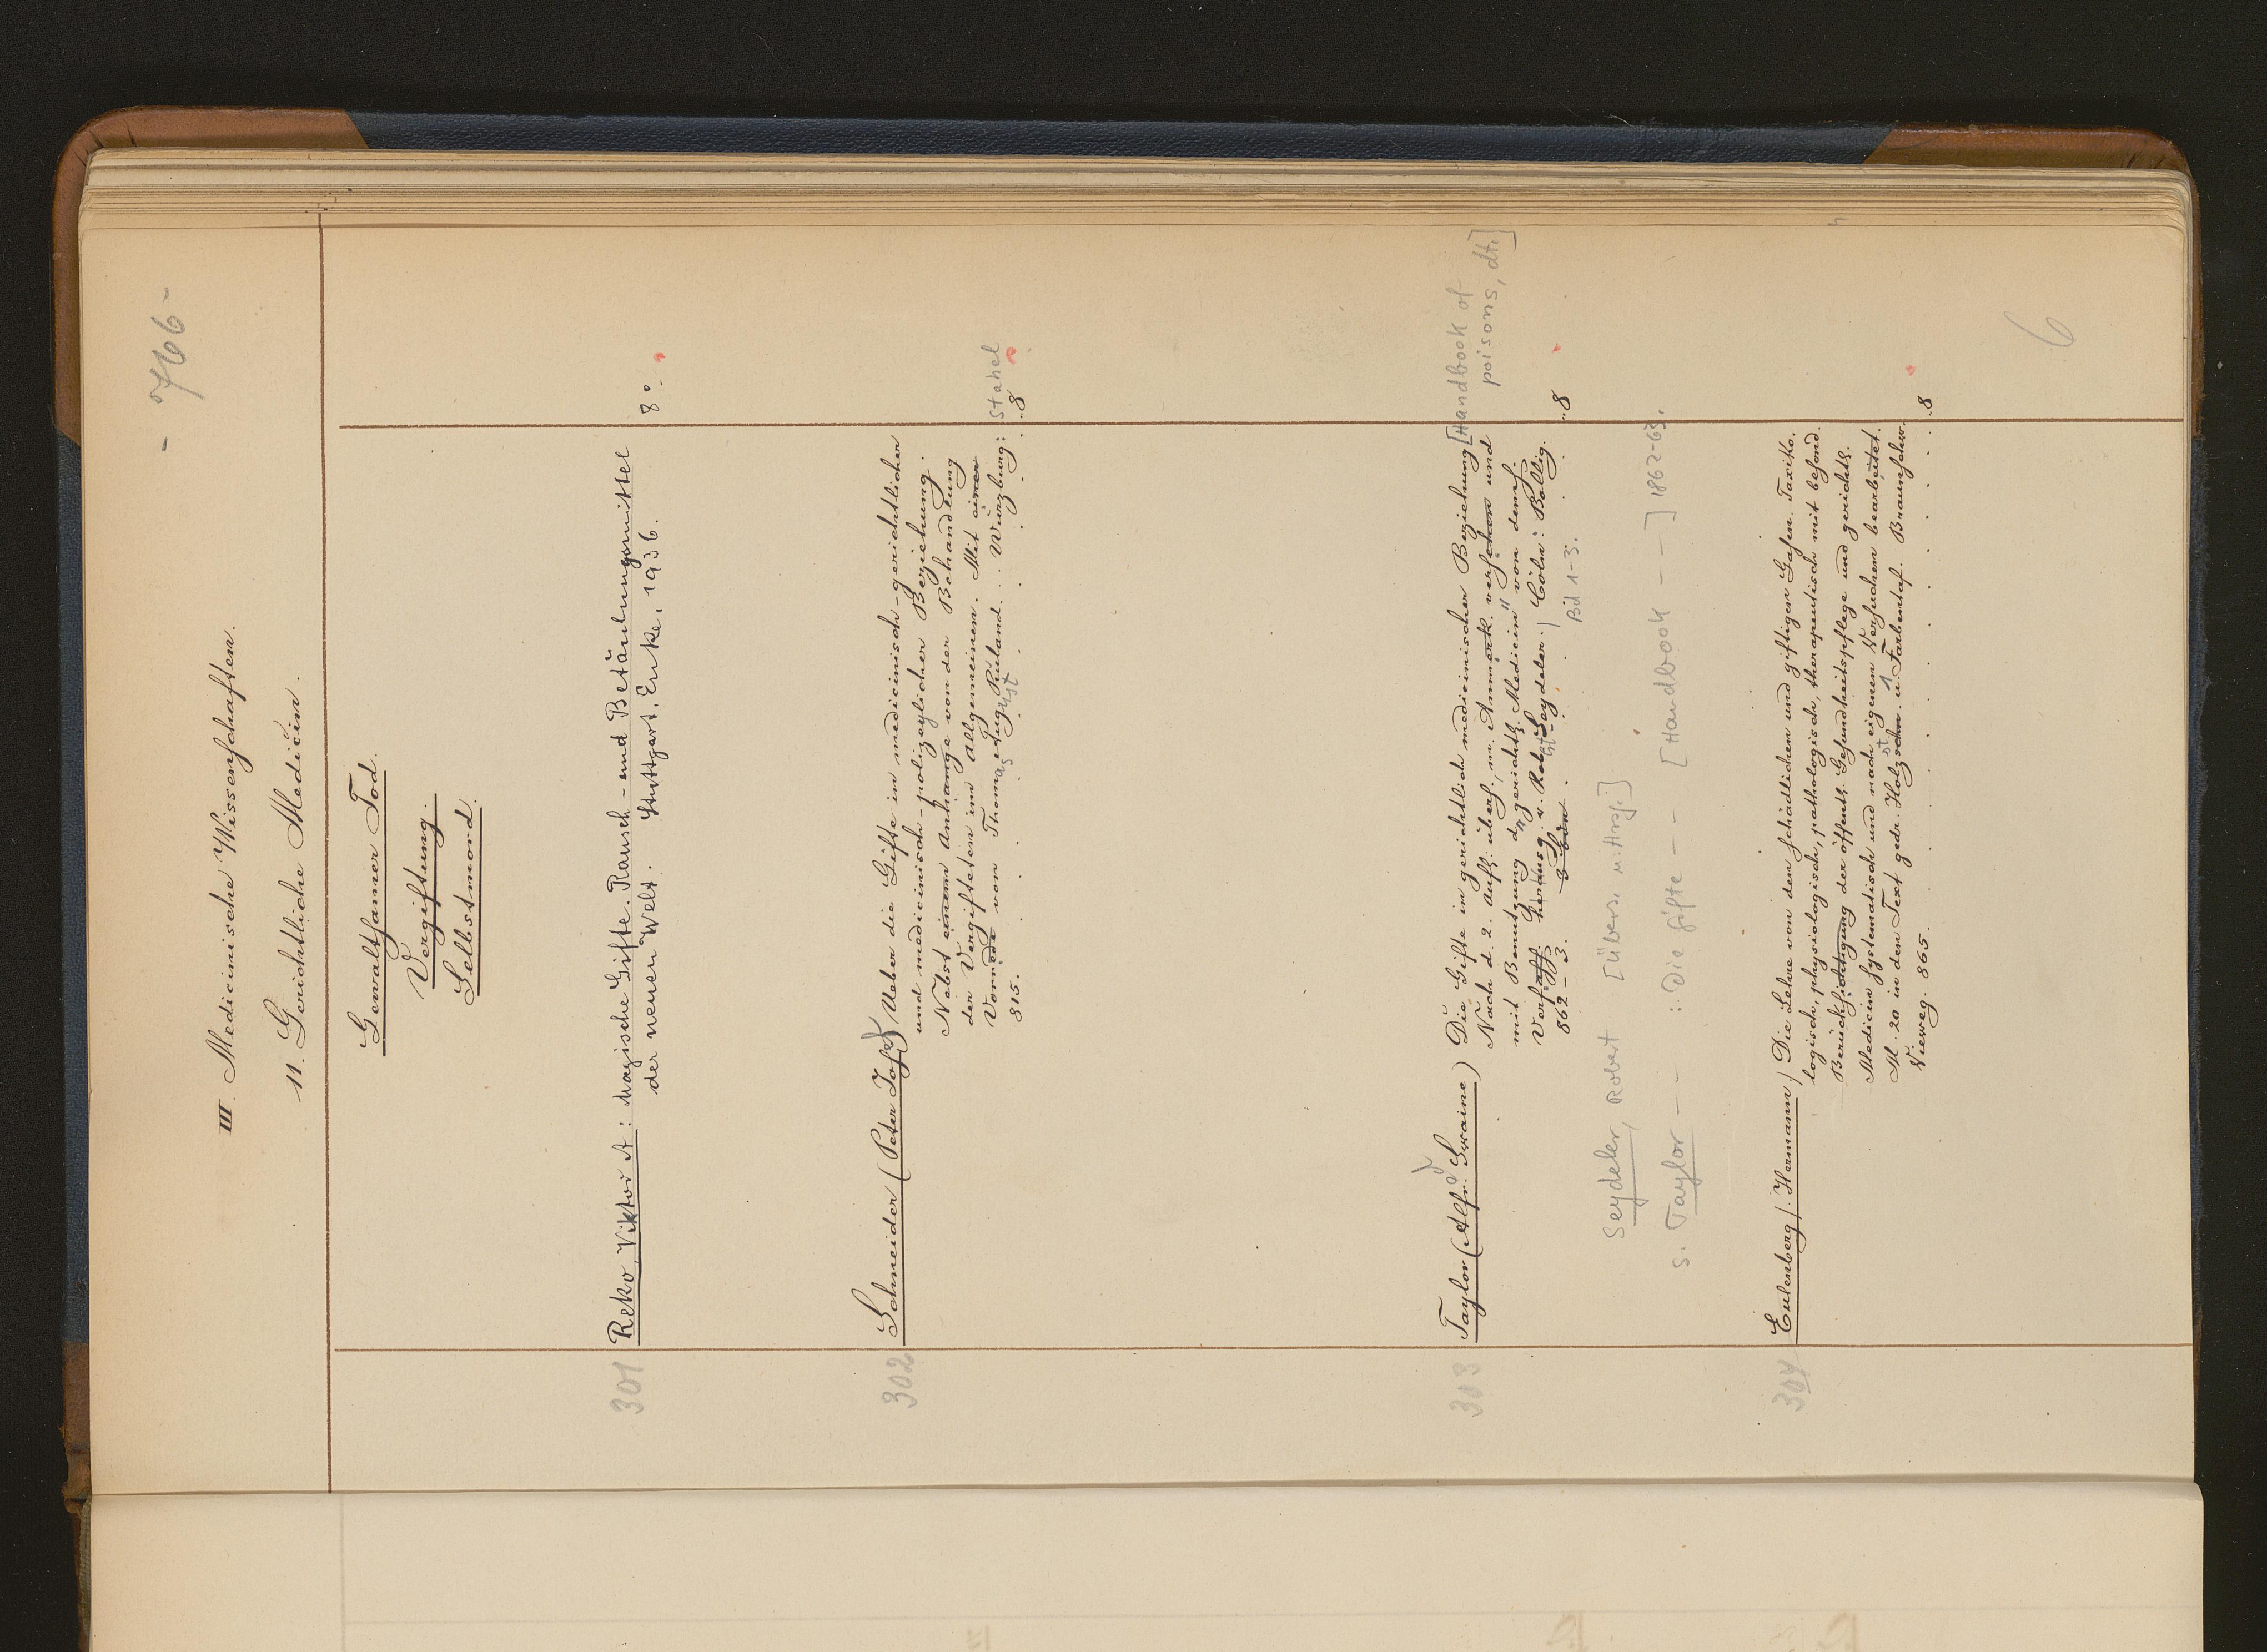 - 766 -
III. Medicinische Wissenschaften.
11. Gerichtliche Medicin.
Gewaltsamer Tod.
Vergiftung.
Selbstmord.
301 Reko, Viktor A: Magische Gifte. Rausch- und Betäubungsmittel
der neuen Welt. Stuttgart. Enke. 1936. 8°
302 Schneider (Peter Josef) Ueber die Gifte in medicinisch-gerichtlicher
und medicinisch-polizeylicher Beziehung.
Nebst einem Anhange von der Behandlung
der Vergifteten im Allgemeinen. Mit einer
Vorrede von Thomas August Ruland... Würzburg: Stahel
815. 8
303 Taylor (Alfr. Swaine) Die Gifte in gerichtlich medicinischer Beziehung [Handbook of
poisons, dt.]
Nach d. 2. Aufl. übers., m. Anmerk. versehen und
mit Benutzung d. "gerichtl. Medicin" von dems.
Verf. herausg. v. Robert Seydeler. Cöln: Bollig.
862-3. 3 Bde. Bd 1-3. 8
Seydeler, Robert [Übers. u. Hrsg.]
s. Taylor - - : Die Gifte - - [Handbook - -] 1862-63.
304 Eulenberg (Hermann) Die Lehre von den schädlichen und giftigen Gasen. Toxiko-
logisch, physiologisch, pathologisch, therapeutisch mit besond.
Berücksichtigung der öffentl. Gesundheitspflege und gerichtl.
Medicin systematisch und nach eigenen Versuchen bearbeitet.
M. 20 in den Text gedr. Holzst. u. 1 Farbentaf. Braunschw.
Vieweg. 865. 8
6